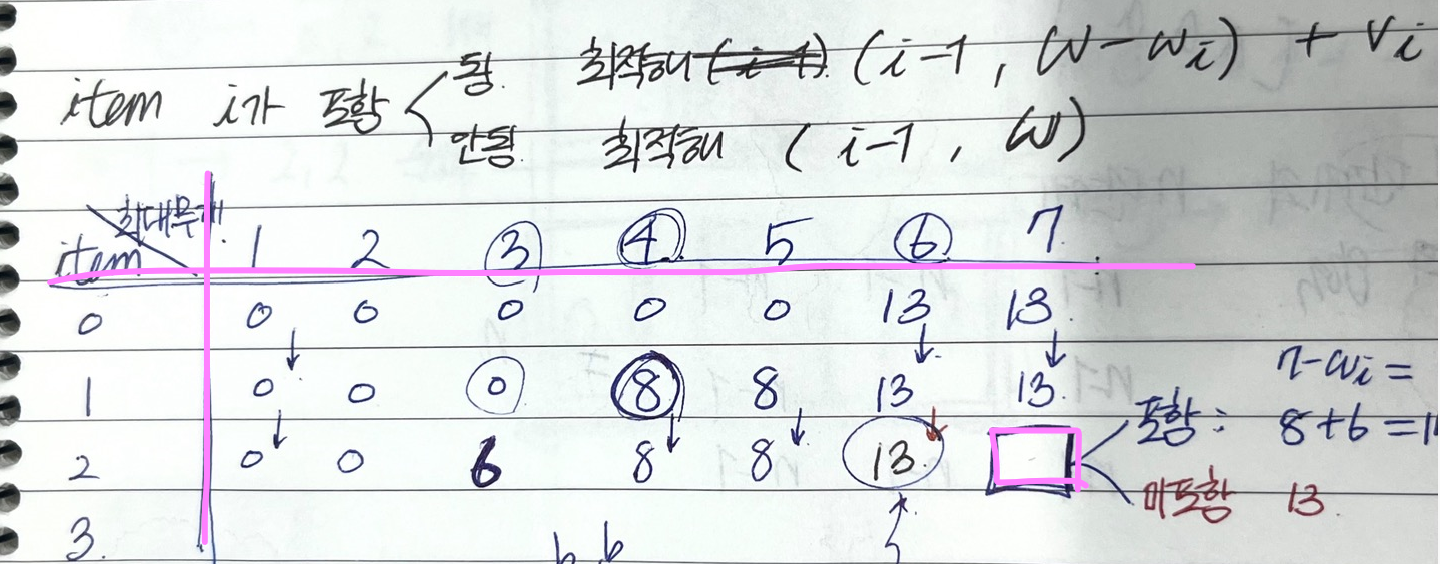 item i가 포함 됨. 최적해 (i-1, W-wi) + vi
안됨. 최적해 (i-1, W)
최대무게
item 1 2 3 4 5 6 7
0 0 0 0 0 0 13 13
1 0 0 0 8 8 13 13
7-wi =
포함: 8+6=1
2 0 0 6 8 8 13
미포함 13
3.